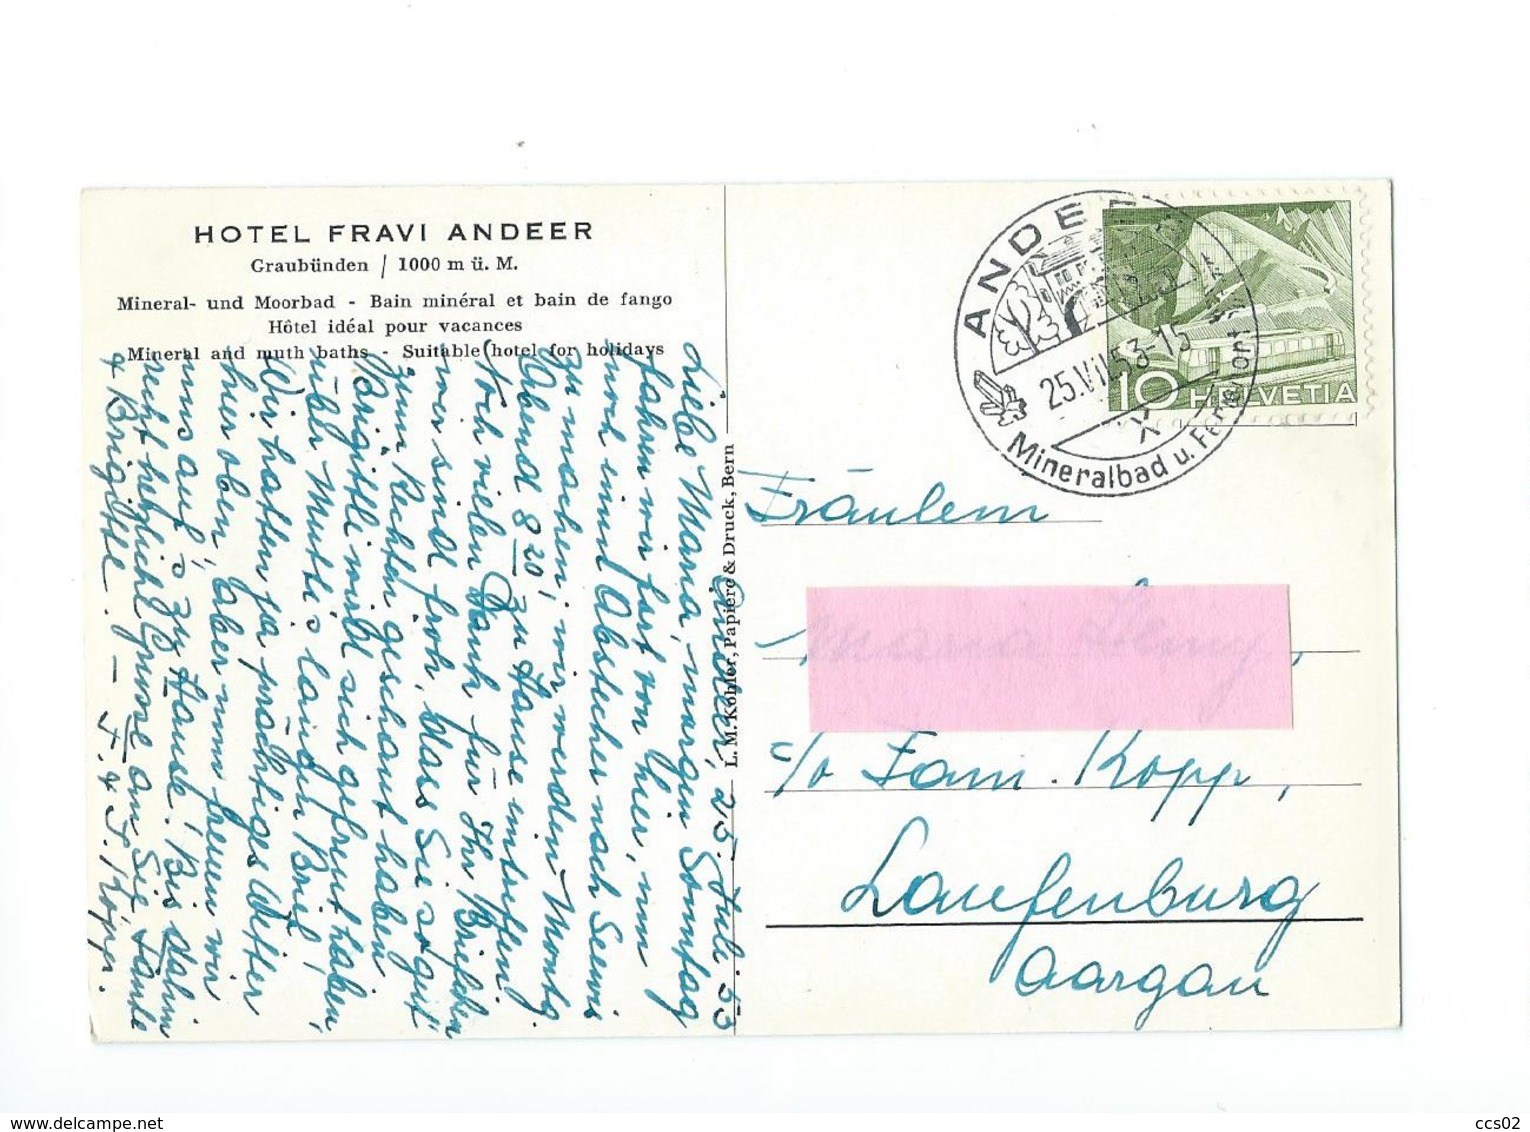 HOTEL FRAVI ANDEER
Graubünden / 1000 m ü. M.
Mineral- und Moorbad - Bain minéral et bain de fango
Hôtel idéal pour vacances
Mineral and muth baths - Suitable hotel for holidays
Andeer, 25. Juli 53
Liebe Maria, morgen Sonntag
fahren wir fort von hier, um
noch einen Abstecher nach Seewis
zu machen; wir werden Montag
Abend 8 20 zu Hause eintreffen.
Noch vielen Dank für Ihr Briefchen
wir sind froh, dass Sie so gut
zum Rechten geschaut haben.
Brigittli wird sich gefreut haben
über Mutti's langen Brief!
Wir hatten ja prächtiges Wetter
hier oben, aber nun freuen wir
uns auf's zu Hause! Bis dahin
recht herzliche Grüsse an Sie, Tante
& Brigitte. -
F. & J. Kopp.
L. M. Kohler, Papiere & Druck, Bern
ANDEER
25.VII.53-15
Mineralbad u. Ferienort
10 HELVETIA
Fräulein
Maria
c/o Fam. Kopp,
Laufenburg
Aargau
ccs02